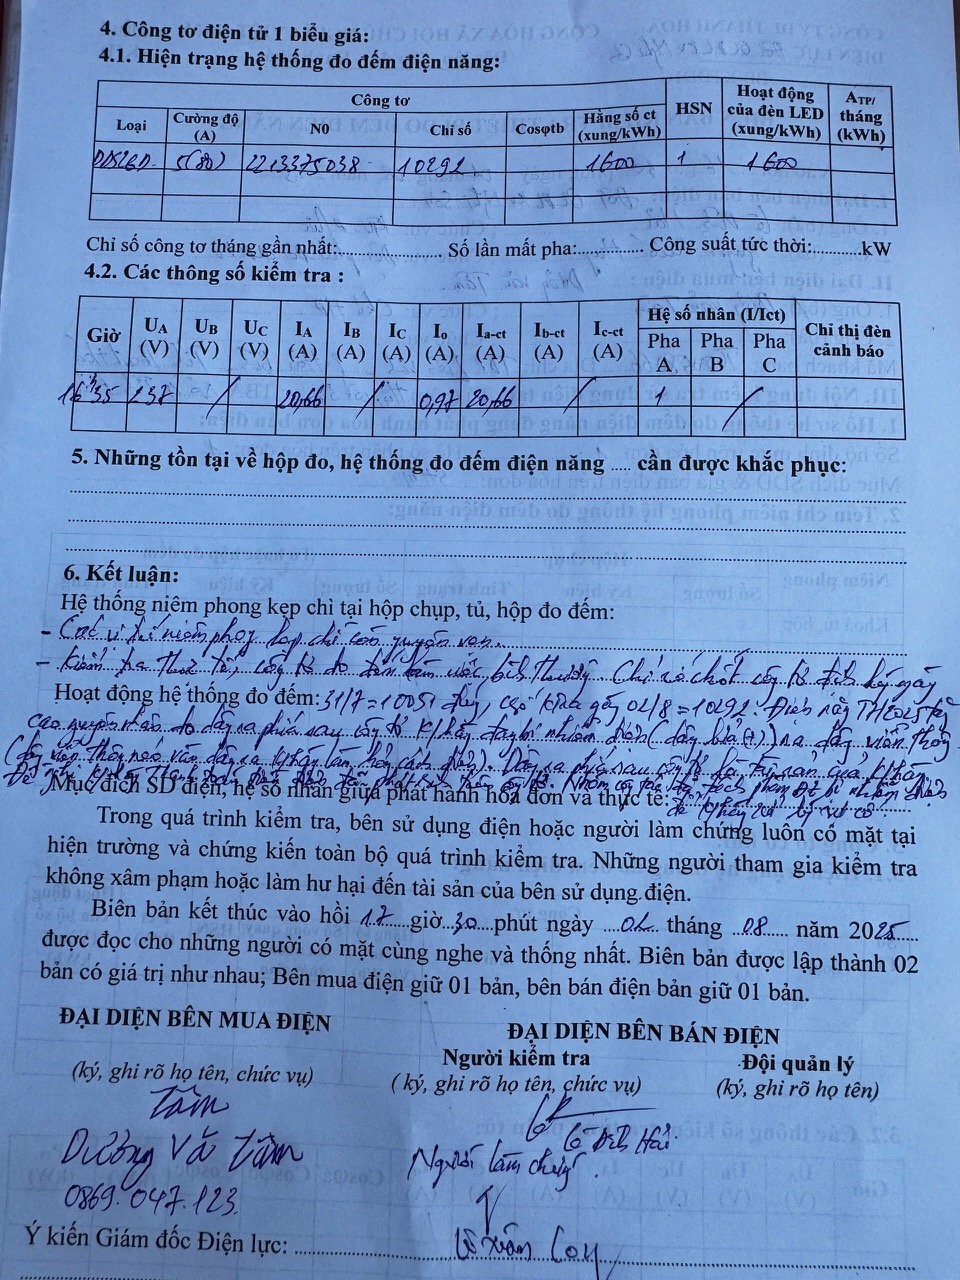 4. Công tơ điện tử 1 biểu giá:
4.1. Hiện trạng hệ thống đo đếm điện năng:
Công tơ HSN Hoạt động của đèn LED (xung/kWh) ATP/ tháng (kWh)
Loại Cường độ (A) N0 Chỉ số Cosφtb Hằng số ct (xung/kWh)
5(80) 2213375038 10292 1600 1 1600
Chỉ số công tơ tháng gần nhất:........ Số lần mất pha:........ Công suất tức thời:........kW
4.2. Các thông số kiểm tra :
Giờ UA (V) UB (V) UC (V) IA (A) IB (A) IC (A) Io (A) Ia-ct (A) Ib-ct (A) Ic-ct (A) Hệ số nhân (I/Ict) Chỉ thị đèn cảnh báo
Pha A Pha B Pha C
16h35 237 / 20,66 / 0,97 20,66 / 1 /
5. Những tồn tại về hộp đo, hệ thống đo đếm điện năng ..... cần được khắc phục:
6. Kết luận:
Hệ thống niêm phong kẹp chì tại hộp chụp, tủ, hộp đo đếm:
- Các vị trí niêm phong kẹp chì còn nguyên vẹn.
- Kiểm tra thực tế, công tơ đo đếm làm việc bình thường. Chỉ số chốt công tơ định kỳ ngày
Hoạt động hệ thống đo đếm: 31/7 = 10051 chỉ số kiểm tra ngày 02/8 = 10292. Điện năng tăng
cao nguyên nhân do dây ra phía sau công tơ bị nhiễm điện (dây lửa (+)) ra dây viễn thông
(dây viễn thông néo vào dây ra Dây ra phía sau công tơ là tài sản của
Mục đích SD điện, hệ số nhân giữa phát hành hóa đơn và thực tế:
Trong quá trình kiểm tra, bên sử dụng điện hoặc người làm chứng luôn có mặt tại
hiện trường và chứng kiến toàn bộ quá trình kiểm tra. Những người tham gia kiểm tra
không xâm phạm hoặc làm hư hại đến tài sản của bên sử dụng điện.
Biên bản kết thúc vào hồi 17 giờ 30 phút ngày 02 tháng 08 năm 2025
được đọc cho những người có mặt cùng nghe và thống nhất. Biên bản được lập thành 02
bản có giá trị như nhau; Bên mua điện giữ 01 bản, bên bán điện bản giữ 01 bản.
ĐẠI DIỆN BÊN MUA ĐIỆN ĐẠI DIỆN BÊN BÁN ĐIỆN
Người kiểm tra Đội quản lý
(ký, ghi rõ họ tên, chức vụ) ( ký, ghi rõ họ tên, chức vụ) (ký, ghi rõ họ tên)
Tâm
Lê Đình Hải
Dương Văn Tâm Người làm chứng
0869.047.123
Ý kiến Giám đốc Điện lực: Lê Xuân